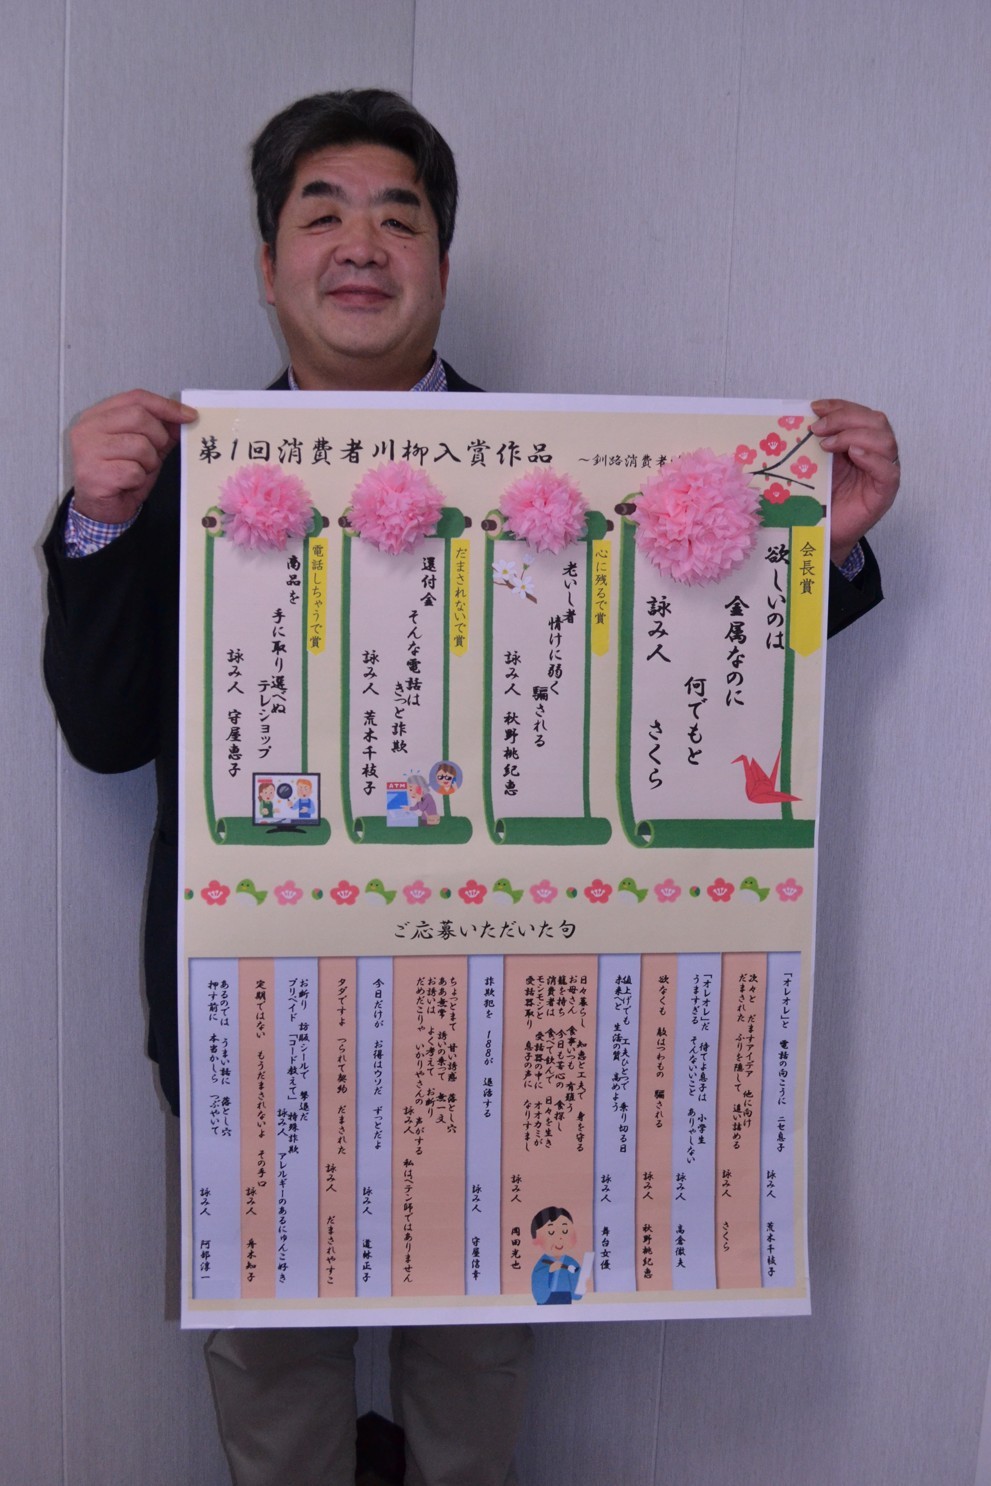 第1回消費者川柳入賞作品
～釧路消費者
会長賞
欲しいのは
金属なのに
何でもと
詠み人 さくら
心に残るで賞
老いし者
情けに弱く
騙される
詠み人 秋野桃紀恵
だまされないで賞
還付金
そんな電話は
きっと詐欺
詠み人 荒木千枝子
電話しちゃうで賞
商品を
手に取り選べぬ
テレショップ
詠み人 守屋恵子
ATM
ご応募いただいた句
「オレオレ」と 電話の向こうに ニセ息子
詠み人 荒木千枝子
次々と だますアイデア 他に向け
だまされた ふりを隠して 追い詰める
詠み人 さくら
「オレオレ」だ 待てよ息子は 小学生
うますぎる そんないいこと ありゃしない
詠み人 高倉徹夫
欲なくも 敵はつわもの 騙される
詠み人 秋野桃紀恵
値上げでも 工夫ひとつで 乗り切る日
未来へと 生活の質 高めよう
詠み人 舞台女優
日々暮らし 知恵と工夫で 身を守る
お母さん 食事いつも 有難う
籠を持ち 今日も苦心の 食探し
消費者は 食べて飲んで 日々を生き
モシモシと 受話器の中に オオカミが
受話器取り 息子の声に なりすまし
詠み人 岡田光也
詐欺犯を 188が 退治する
詠み人 守屋信幸
ちょっとまて 甘い誘惑 落とし穴
ああ無常 誘いの乗って 無一文
お誘いは よく考えて お断り
だめだこりゃ いかりやさんの 声がする
詠み人 私はペテン師ではありません
今日だけが お得はウソだ ずっとだよ
詠み人 道林正子
タダですよ つられて契約 だまされた
詠み人 だまされやすこ
お断り 訪販シールで 撃退だ
プリペイド 「コード教えて」 特殊詐欺
詠み人 アレルギーのあるにゅんこ好き
定期ではない もうだまされないよ その手口
詠み人 舟木知子
あるのでは うまい話に 落とし穴
押す前に 本当かしら つぶやいて
詠み人 阿部淳一